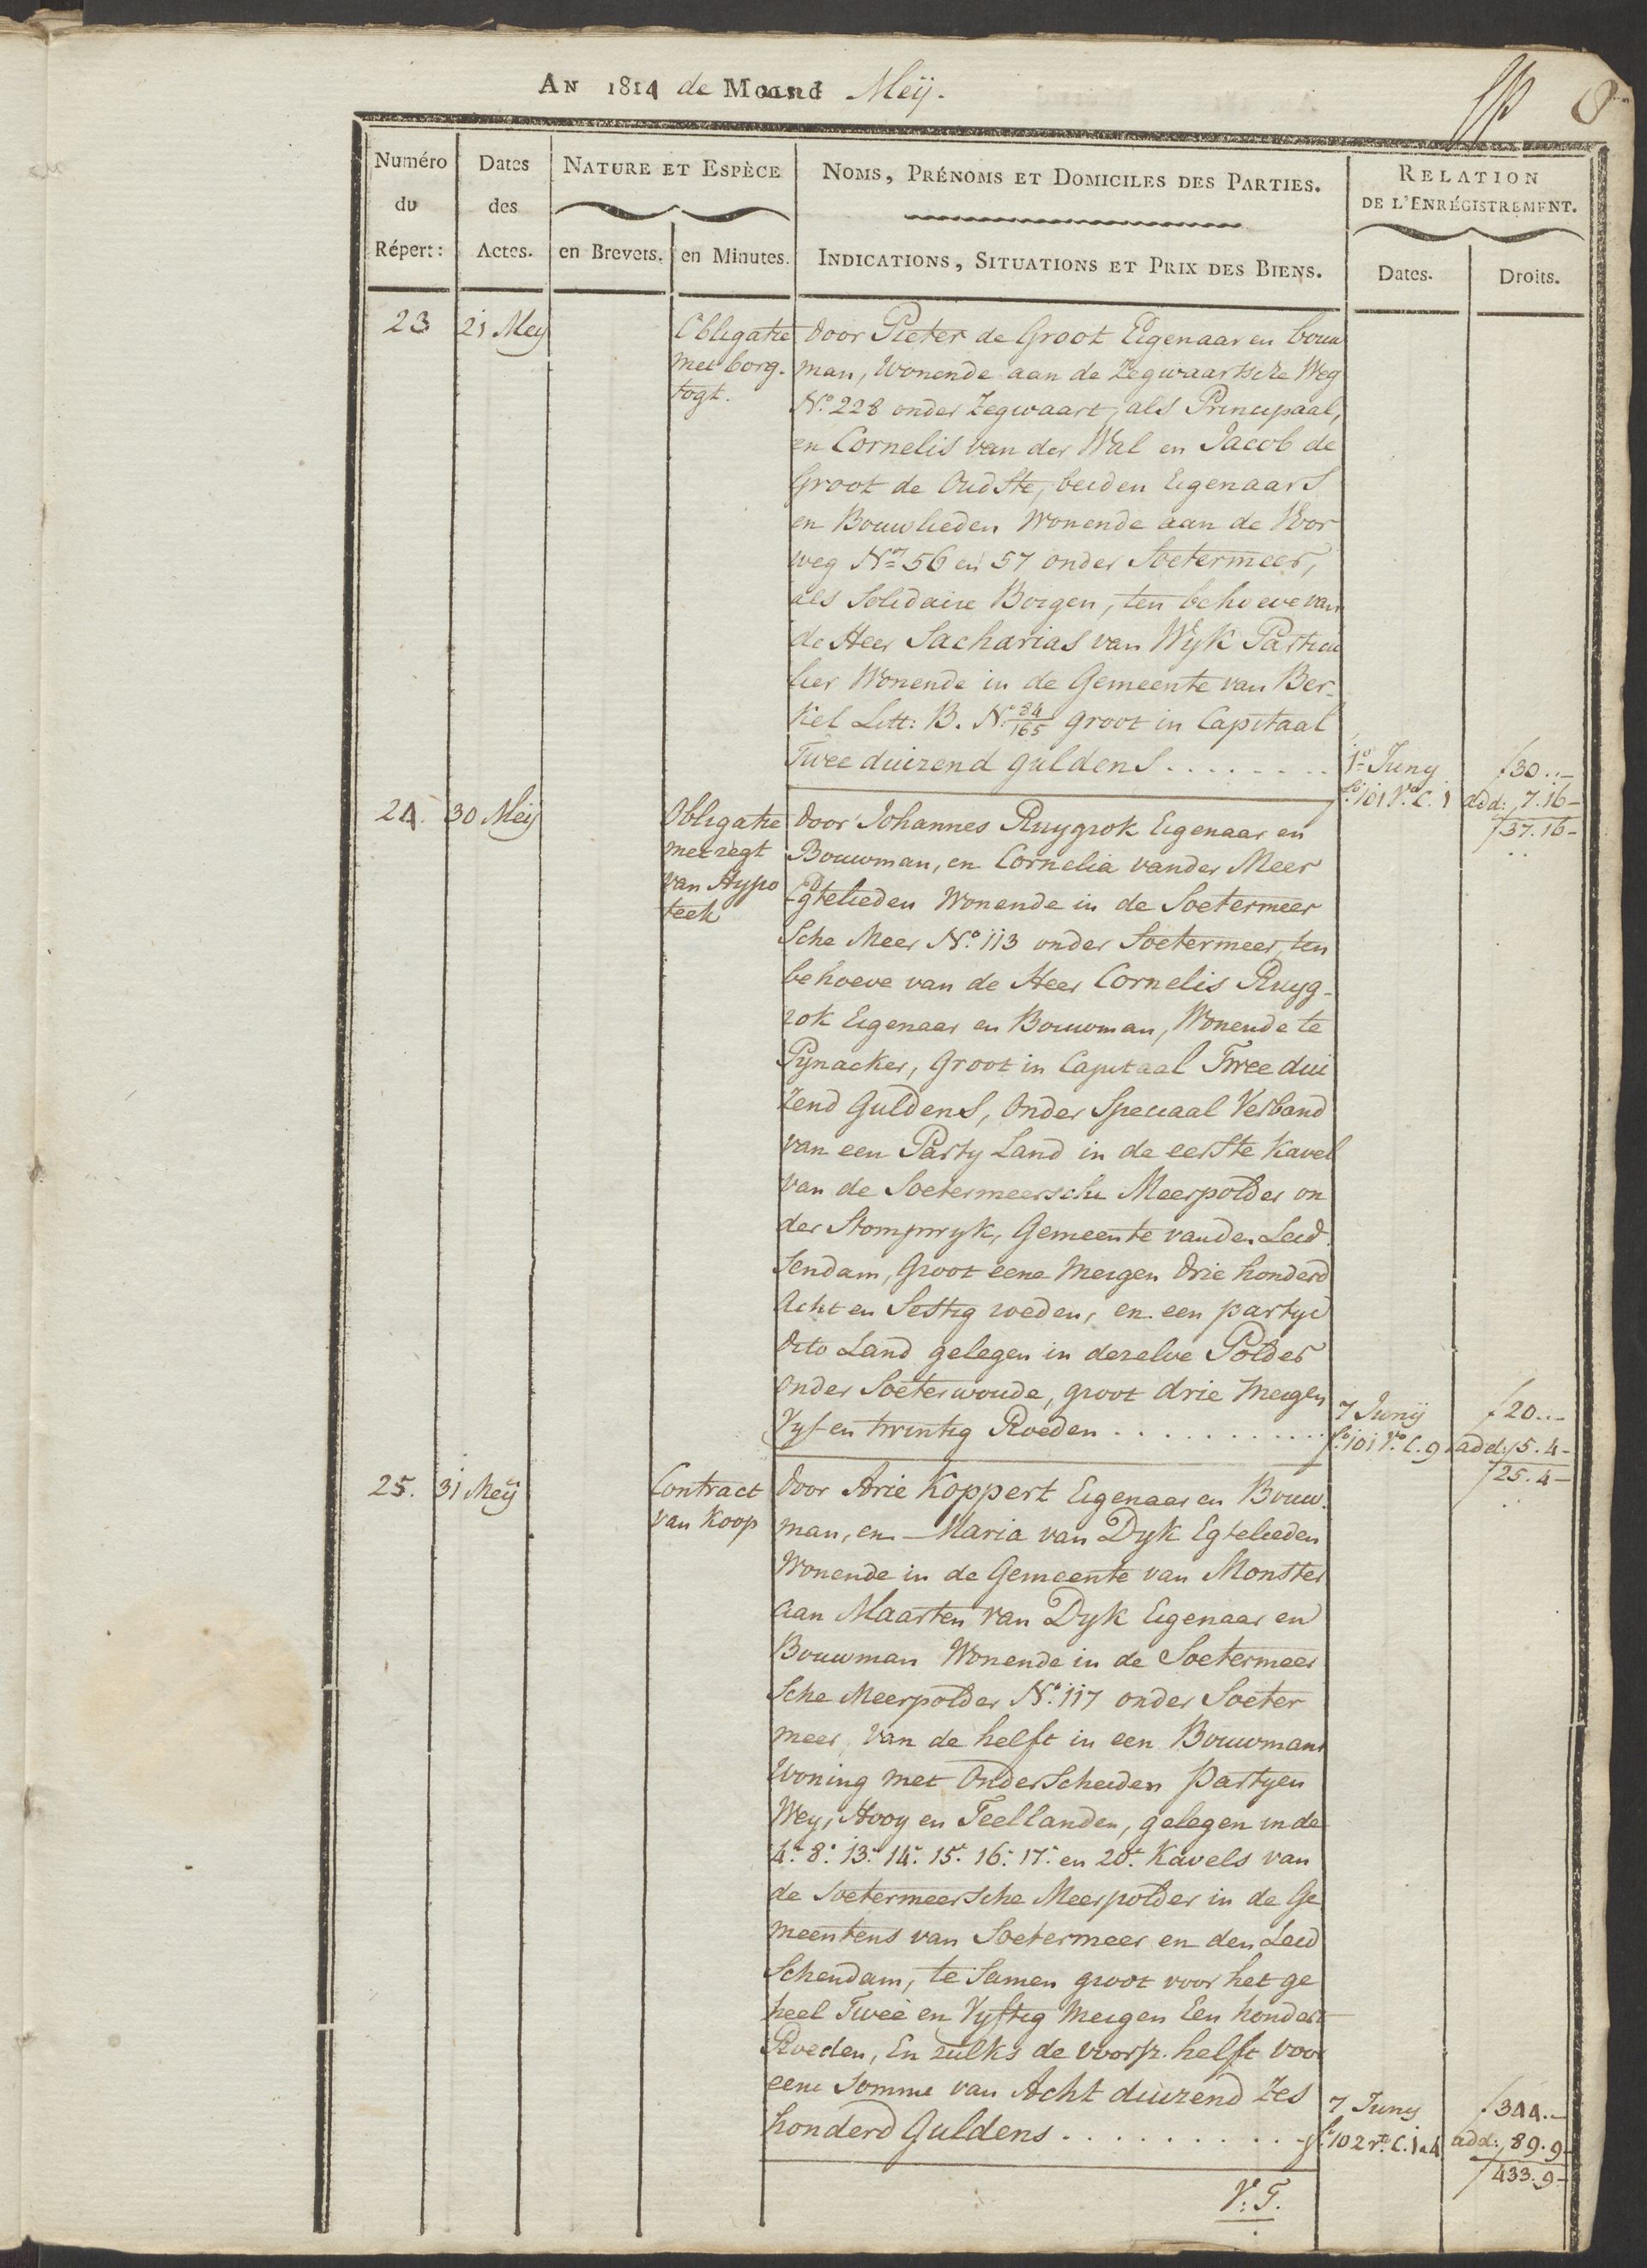 AN 1814 de Maand Meij.
8
Numéro
du
Répert:
Dates
des
Actes.
NATURE ET ESPÈCE
en Brevets.
en Minutes.
NOMS, PRÉNOMS ET DOMICILES DES PARTIES.
INDICATIONS, SITUATIONS ET PRIX DES BIENS.
RELATION
DE L'ENRÉGISTREMENT.
Dates.
Droits.
23
21 Meij
Obligatie
met borg-
togt.
door Pieter de Groot Eigenaar en bouw
man, Wonende aan de Zegwaartsche Weg
No. 228 onder Zegwaart, als Principaal,
en Cornelis van der Wal en Jacob de
Groot de Oudste, beiden Eigenaars
en Bouwlieden Wonende aan de Voor
weg Nos 56 en 57 onder Soetermeer,
als Solidaire Borgen, ten behoeve van
de Heer Sacharias van Wyk Particu
lier Wonende in de Gemeente van Ber-
kel Litt: B. No. 84/165 groot in Capitaal
Twee duizend guldens . . . . . . . .
1o Juny
fo 101 Vo C. 1
f 30..-
add: 7.16-
f 37.16-
24.
30 Meij
Obligatie
met regt
van Hypo
teek
door Johannes Ruygrok Eigenaar en
Bouwman, en Cornelia vander Meer
Egtelieden Wonende in de Soetermeer
Sche Meer No. 113 onder Soetermeer, ten
behoeve van de Heer Cornelis Ruyg-
rok Eigenaar en Bouwman, Wonende te
Pynacker, Groot in Capitaal Twee dui
Zend Guldens, Onder Speciaal Verband
van een Party Land in de eerste Kavel
van de Soetermeersche Meerpolder on
der Stompwyk, Gemeente van den Leid
Sendam, Groot eene Mergen drie honderd
Acht en Sestig roeden, en een partye
dito Land gelegen in dezelve Polder
onder Soeterwoude, groot drie Mergen
Vyf en twintig Roeden . . . . . . . . . . .
7 Junij
fo 101 Vo C. 9
f 20..-
add: 5.4-
f 25.4-
25.
31 Meij
Contract
van Koop
door Arie Koppert Eigenaar en Bouw-
man, en Maria van Dyk Egtelieden
Wonende in de Gemeente van Monster
aan Maarten van Dyk Eigenaar en
Bouwman Wonende in de Soetermeer
Sche Meerpolder No. 117 onder Soeter
meer, van de helft in een Bouwmans
Woning met Onderscheiden partyen
Wey, Hooy en Teellanden, gelegen in de
4e 8e 13e 14e 15e 16e 17e en 20e Kavels van
de Soetermeersche Meerpolder in de Ge
meentens van Soetermeer en den Leid
Schendam, te Samen groot voor het ge
heel Twee en Vyftig Mergen Een hondert
Roeden, En zulks de voorsz. helft voor
eene Somme van Acht duizend Zes
honderd Guldens . . . . . . . . . .
7 Juny
fo 102 ro C. 1 a 4
f 344.-
add: 89.9-
f 433.9-
V: T.